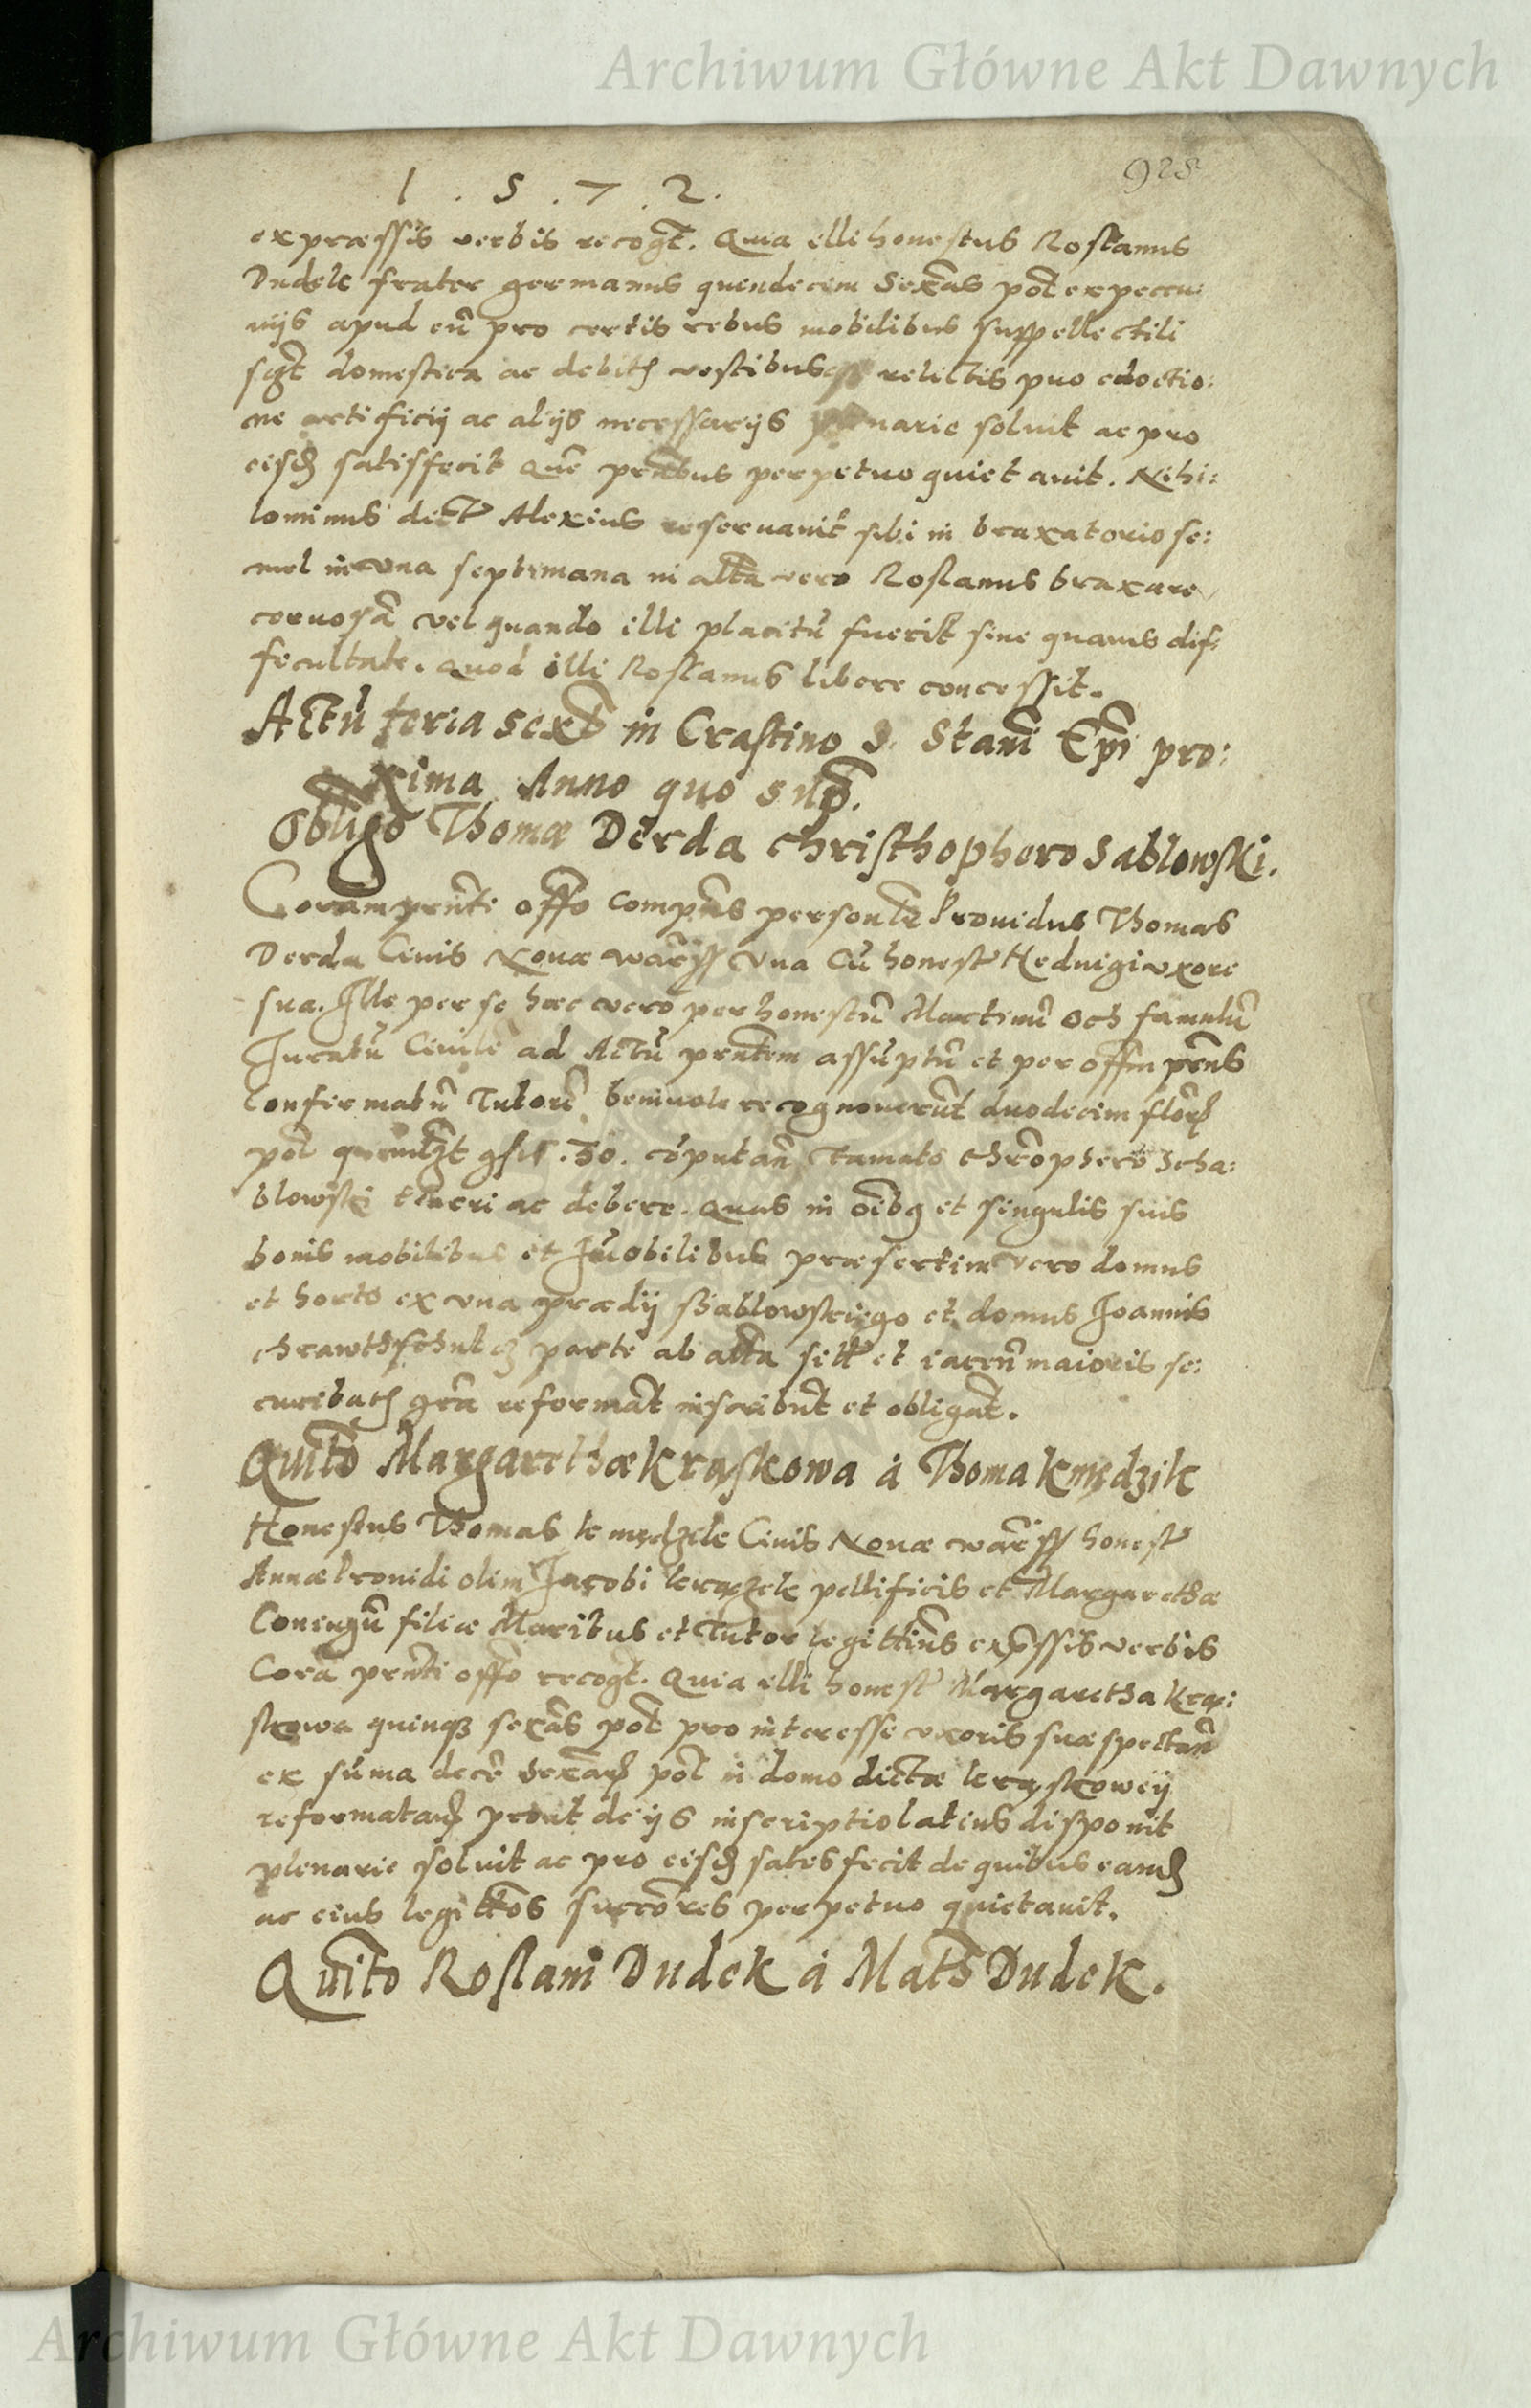 Archiwum Główne Akt Dawnych
928
1 . 5 . 7 . 2 .
expræssis verbis recogt. Quia illi honestus Rostanus
Dudek frater germanus quindecim Sexas pol ex peccu:
nijs apud eu pro certis rebus mobilibus suppellectili
domestica ac debit vestibus relictis pro edoctio:
ne artificij ac alijs necessarijs plenarie soluit ac pro
eisd satisfecit Que prntibus perpetuo quietauit. Nihi:
lominus dict Alexius reseruauit sibi in braxatorio se:
mel in una septimana in alta vero Rostanus braxare
ceruosia vel quando illi placitu fuerit sine quauis dif:
ficultate. Quod illi Rostanus libere concessit.
Actu feria sexta in Crastino S. Stani Epi pro:
xima Anno quo sup.
Obligo Thomæ Derda Christhophero Sablowski.
Coram prnti offo compns personlr Prouidus Thomas
Derda Ciuis Nouæ Warss Vna cu honest Heduigi uxore
sua. Ille per se hæc vero per honestu Martinu Och famulu
Juratu Ciuile ad Actu prntem assuptu et per offm prns
Confirmatu Tutore beniuole recognouerut duodecim flor
pol 30. coputan famato Chrophero Scha:
blowski teneri ac debere. Quas in oibq et singulis suis
bonis mobilibus et Jmobilibus præsertim vero domus
et horto ex vna prædij Sablowskiego et domus Joannis
parte ab alta sitt et iacen maioris se:
curitatis gra reformat inscribut et obligat.
Quito Margarethæ Kraskowa á Thoma Kmędzik
Honestus Thomas kmędzik Ciuis Nouæ Warss honest
Annæ Prouidi olim Jacobi pellificis et Margarethæ
Coniugu filiæ Maritus et Tutor legittims expssis verbis
Cora prnti offo recogt. Quia illi honest Margaretha Kra:
skowa quinq sexas pol pro interesse uxoris suæ spectan
ex suma dece Sexar pol in domo dictæ kraskowey
reformatar prout de ijs inscriptio latius disponit
plenarie soluit ac pro eisd satisfecit de quibus eand
ac eius legittos succores perpetuo quietauit.
Quito Rostani Dudek á Math Dudek.
Archiwum Główne Akt Dawnych